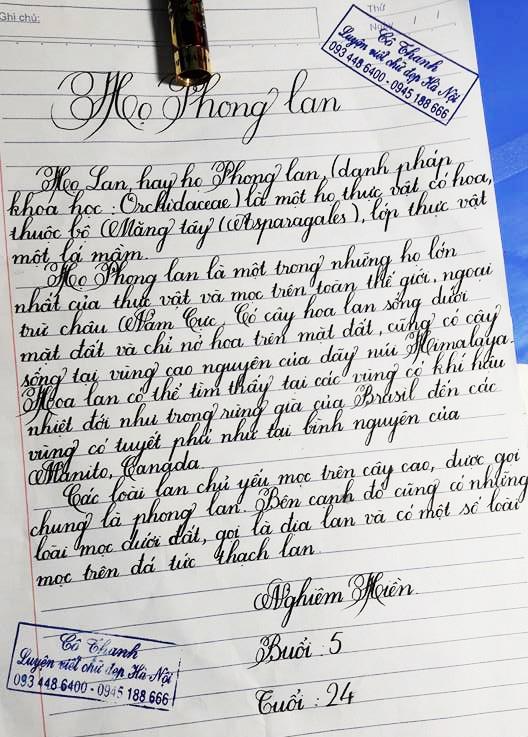 Ghi chú:
Thứ
Ngày / /
Cô Thanh
Luyện viết chữ đẹp Hà Nội
093 448 6400 - 0945 188 666
Họ Phong lan
Họ Lan, hay họ Phong lan, (danh pháp
khoa học : Orchidaceae) là một họ thực vật có hoa,
thuộc bộ Măng tây (Asparagales), lớp thực vật
một lá mầm.
Họ Phong lan là một trong những họ lớn
nhất của thực vật và mọc trên toàn thế giới, ngoại
trừ châu Nam Cực. Có cây hoa lan sống dưới
mặt đất và chỉ nở hoa trên mặt đất, cũng có cây
sống tại vùng cao nguyên của dãy núi Himalaya.
Hoa lan có thể tìm thấy tại các vùng có khí hậu
nhiệt đới như trong rừng già của Brasil đến các
vùng có tuyết phủ như tại bình nguyên của
Manito, Cangda.
Các loài lan chủ yếu mọc trên cây cao, được gọi
chung là phong lan. Bên cạnh đó cũng có những
loài mọc dưới đất, gọi là địa lan và có một số loài
mọc trên đá tức thạch lan.
Nghiêm Hiền.
Buổi : 5
Tuổi : 24
Cô Thanh
Luyện viết chữ đẹp Hà Nội
093 448 6400 - 0945 188 666